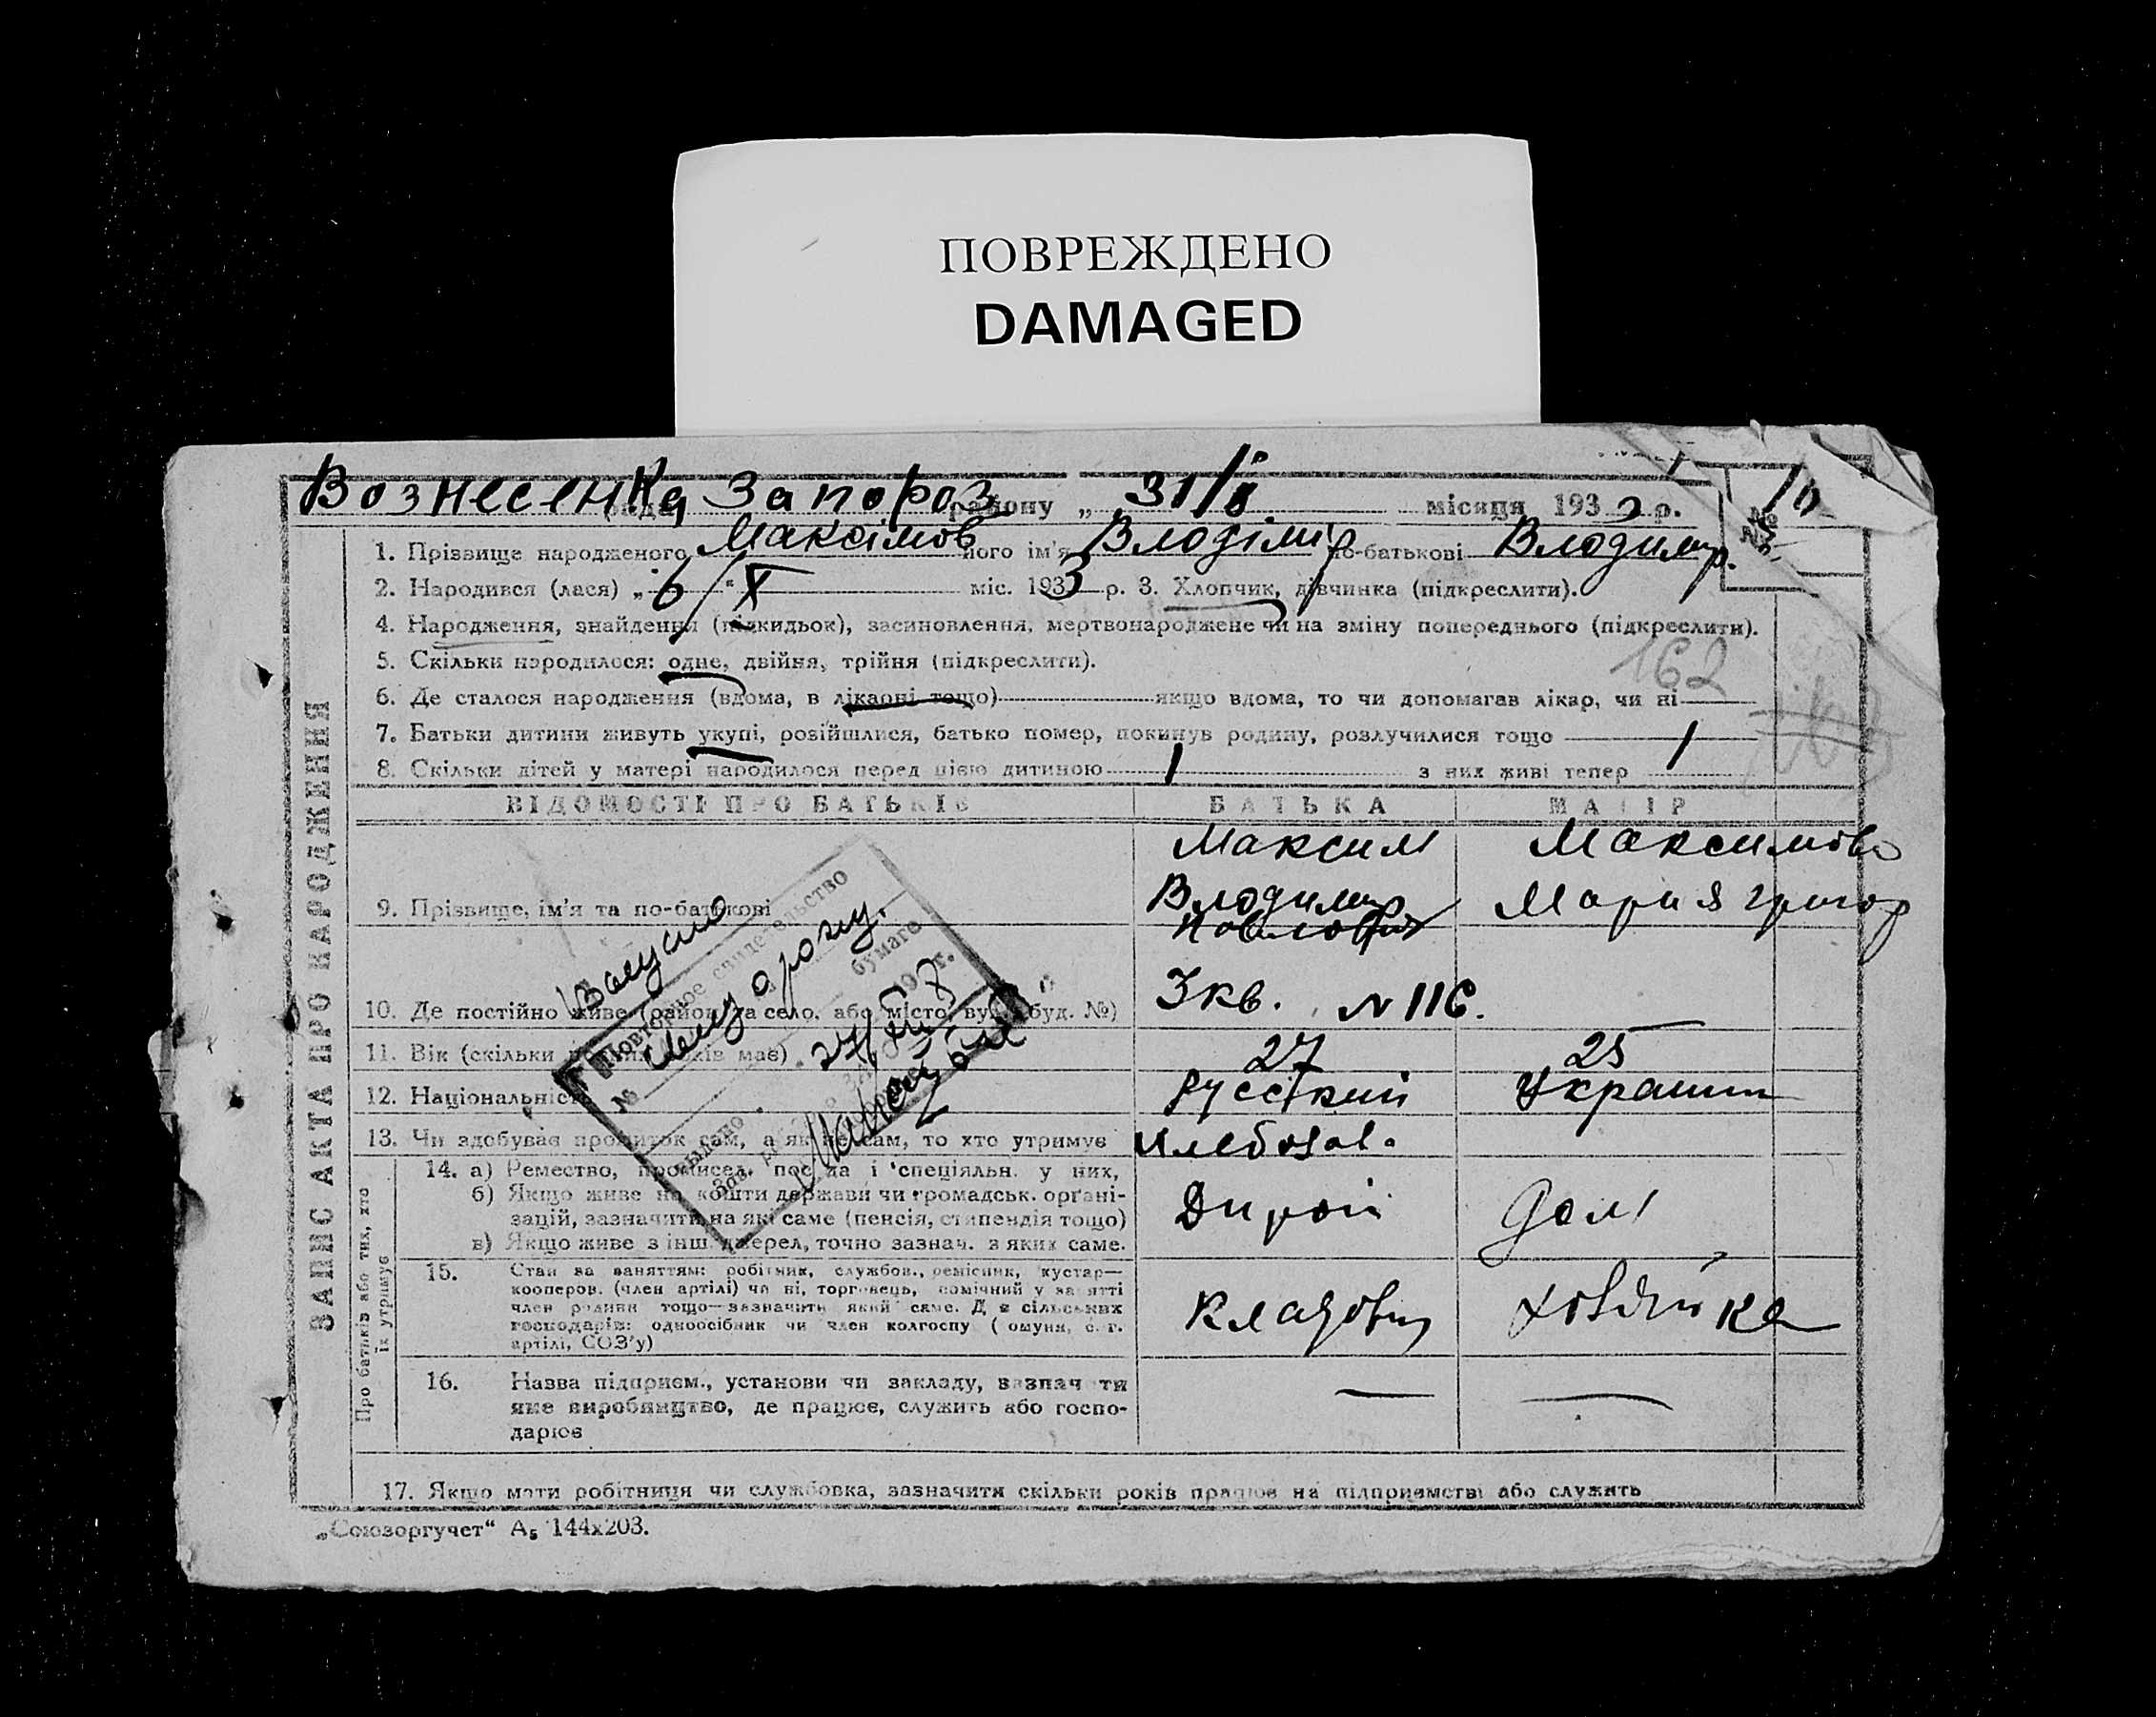 ПОВРЕЖДЕНО
DAMAGED
Вознесенка Запороз району „ 31/X місяця 193 р. №
1. Прізвище народженого Максімов його ім'я Владімір по-батькові Владимир.
2. Народився (лася) „ 6/X міс. 1933 р. 3. Хлопчик, дівчинка (підкреслити).
4. Народження, знайдення (підкидьок), засиновлення, мертвонароджене чи на зміну попереднього (підкреслити).
5. Скільки народилося: одне, двійня, трійня (підкреслити).
162
6. Де сталося народження (вдома, в лікарні тощо) якщо вдома, то чи допомагав лікар, чи ні
7. Батьки дитини живуть укупі, розійшлися, батько помер, покинув родину, розлучилися тощо
8. Скільки дітей у матері народилося перед цією дитиною 1 з них живі тепер 1
ЗАПИС АКТА ПРО НАРОДЖЕННЯ
ВІДОМОСТІ ПРО БАТЬКІВ БАТЬКА МАТІР
Максим Максимова
9. Прізвище, ім'я та по-батькові Владимир Мария Григор
Павлович
10. Де постійно живе (район та село, або місто, вул. буд. №) 3 кв. N 116.
11. Вік (скільки років має) 27 25
12. Національність Русский Украинк
13. Чи здобував прожиток сам, а як не сам, то хто утримує Хлебозав.
Про батьків або тих, хто їх утримує
14. а) Ремество, промисел, посада і спеціяльн. у них,
б) Якщо живе на кошти держави чи громадськ. орґані-
зацій, зазначити на які саме (пенсія, стипендія тощо)
в) Якщо живе з інш. джерел, точно зазнач. з яких саме.
15. Стан за заняттям: робітник, службов., ремісник, кустар—
кооперов. (член артілі) чи ні, торговець, помічний у занятті
член родини тощо—зазначити який саме. Для сільських
господарів: одноосібник чи член колгоспу (комуни, с.-г.
артілі, СОЗ'у)
Кладовщ
16. Назва підприєм., установи чи закладу, зазначити
яке виробництво, де працює, служить або госпо-
дарює
17. Якщо мати робітниця чи службовка, зазначити скільки років працює на підприємстві або служить
Повторное свидетельство
№ бумаге
г.
Выдано
Зав.
„Союзоргучет“ А₅ 144х203.